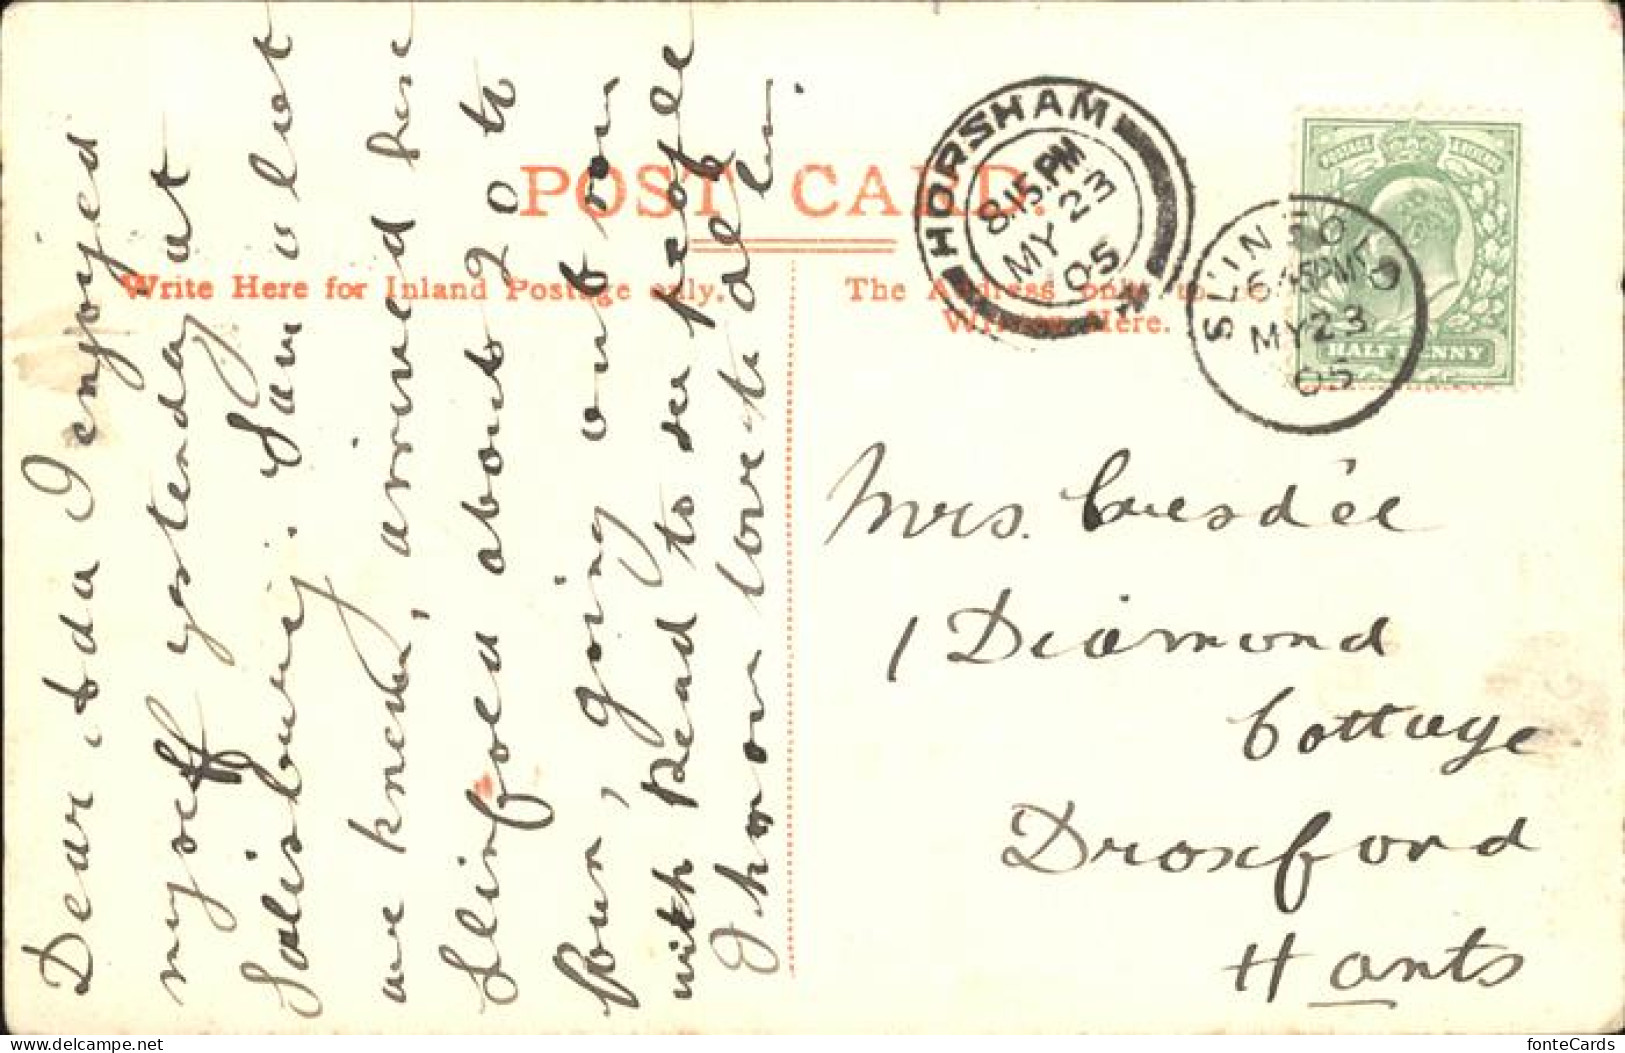 POST CARD.
Write Here for Inland Postage only.
The Address only to be
Written Here.
HORSHAM
8.15.PM
MY 23
05
SLINFOLD
6 45PM
MY 23
05
POSTAGE REVENUE
HALF PENNY
Dear Ada I enjoyed
myself yesterday at
Salisbury. Saw a lot
we knew, arrived here
Slinfold about 20 to
four, going out now
with Read to see people
I know love to all
Mrs.
1 Diamond
Cottage
Droxford
Hants
fonteCards